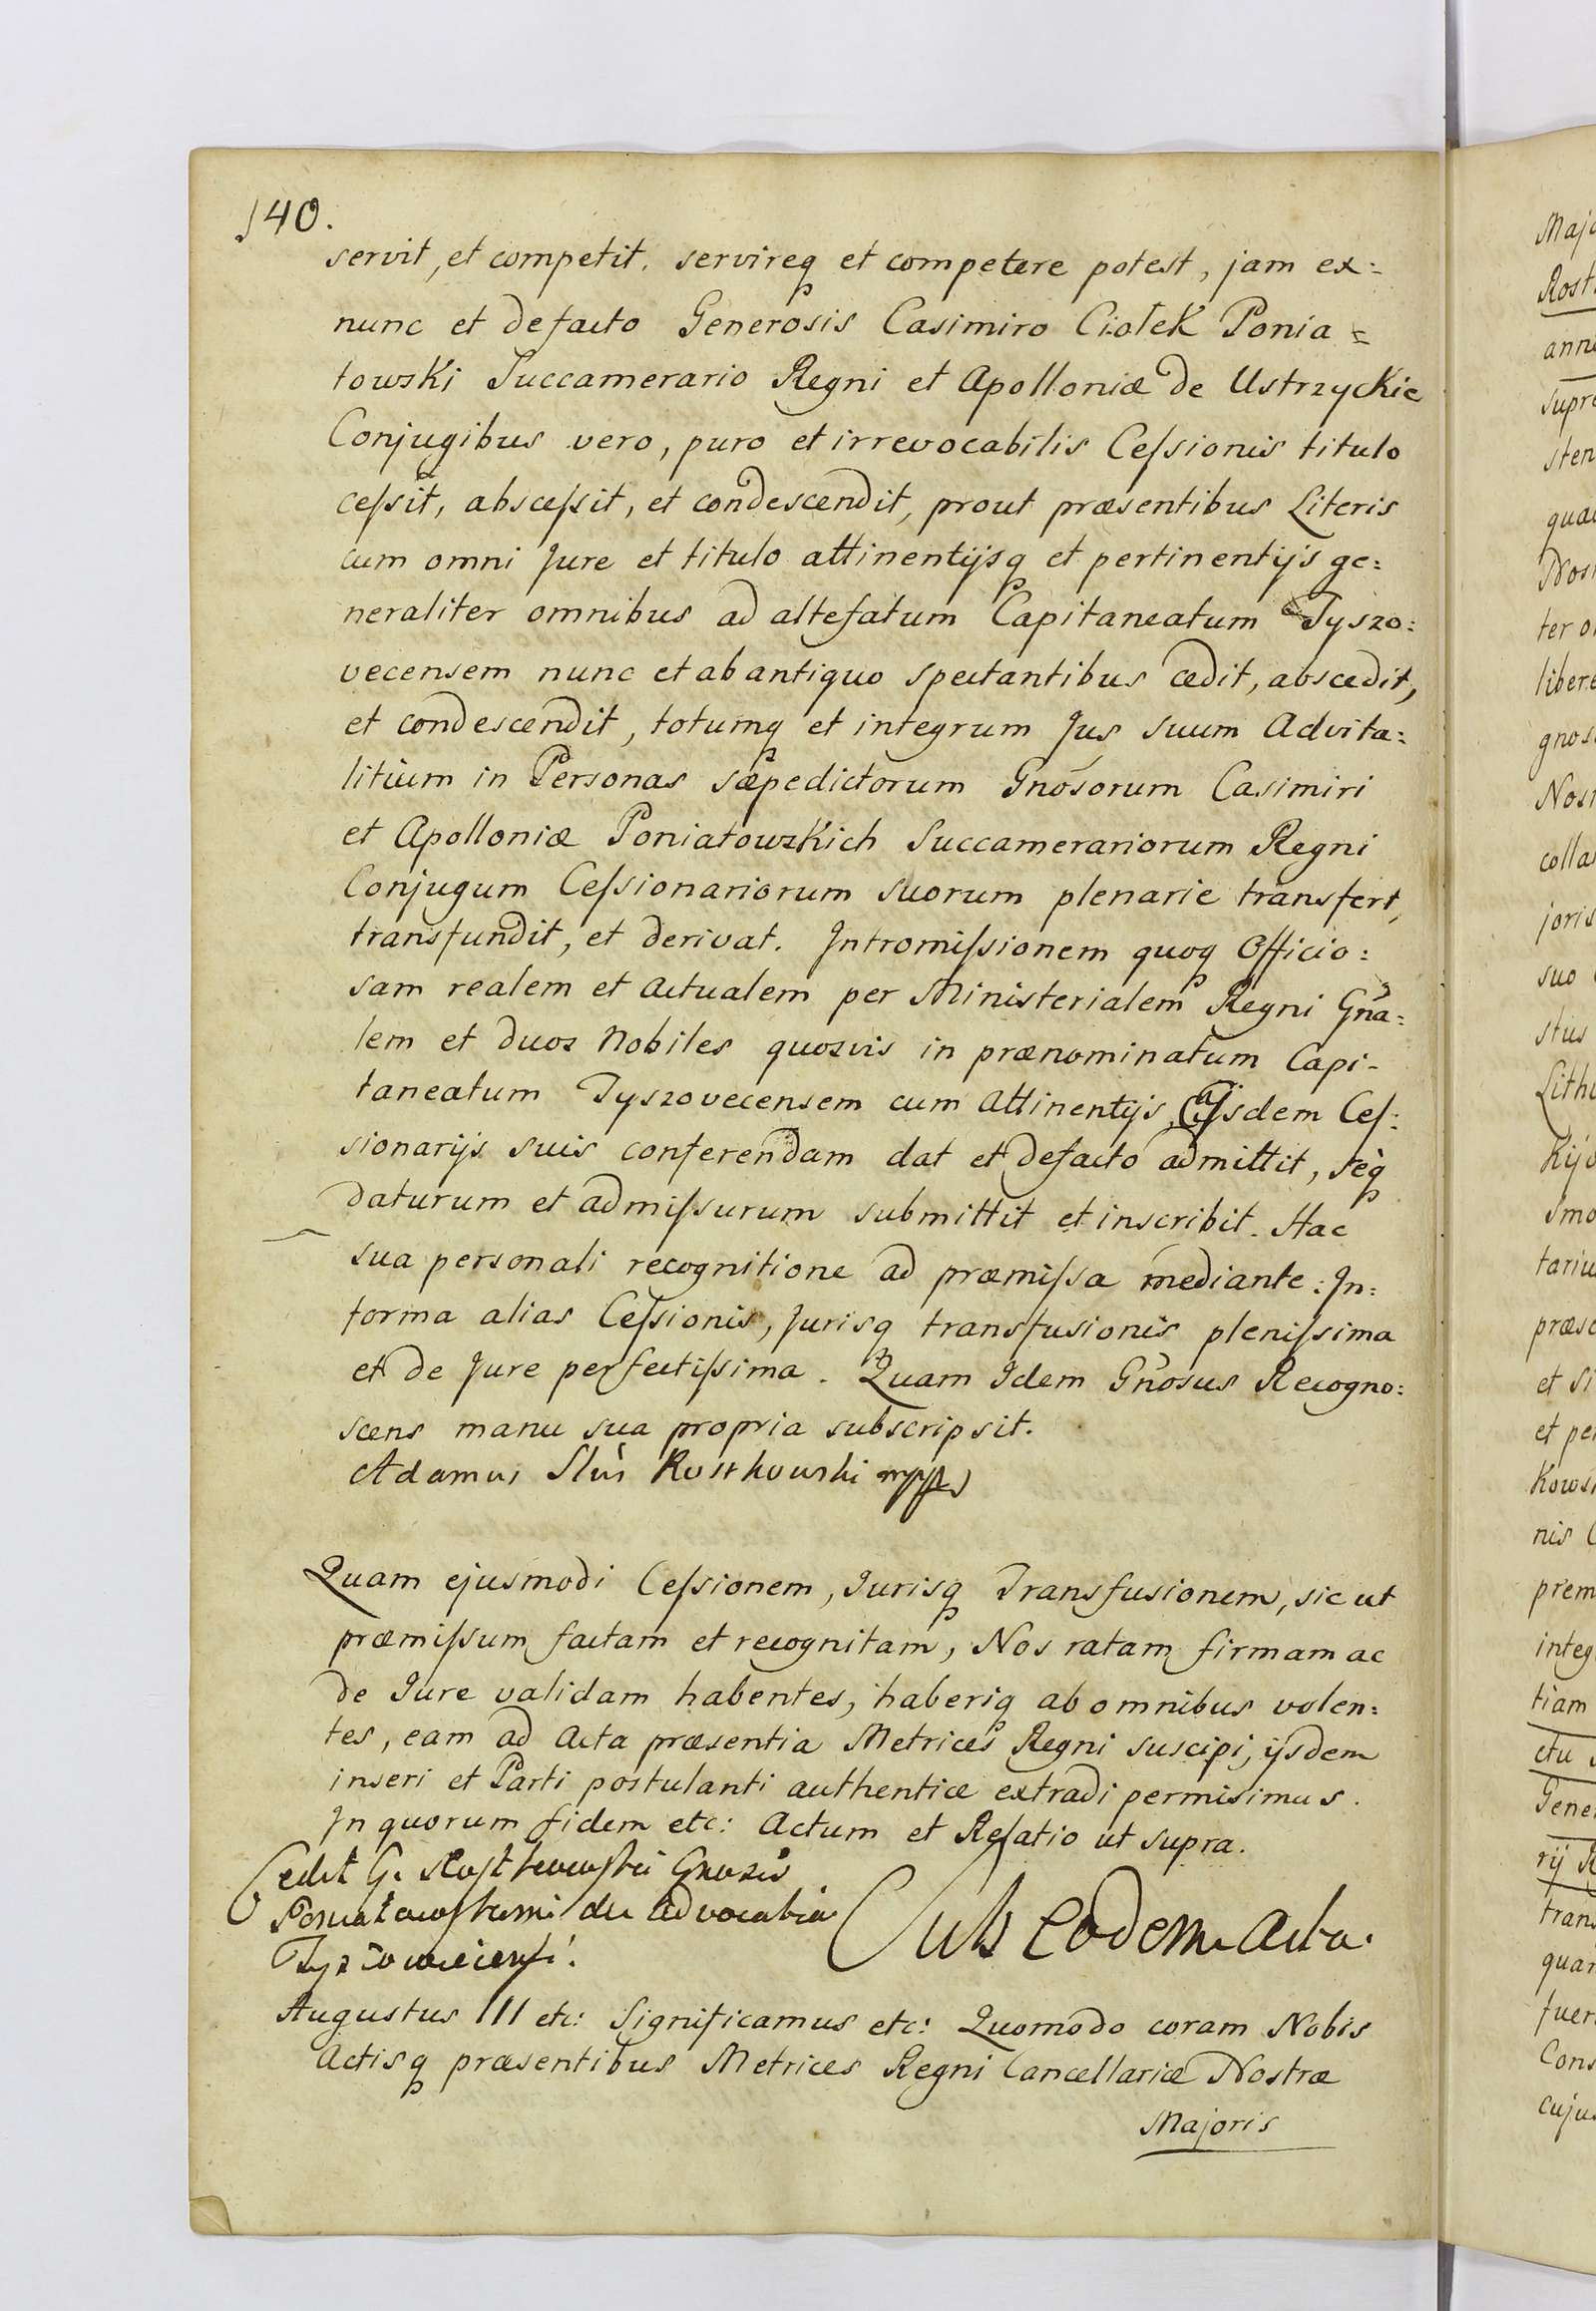 140.
servit, et competit. servireq et competere potest, jam ex:
nunc et defacto Generosis Casimiro Ciołek Ponia=
towski Succamerario Regni et Apolloniæ de Ustrzyckie
Conjugibus vero, puro et irrevocabilis Ceſsionis titulo
ceſsit, absceſsit, et condescendit, prout præsentibus Literis
cum omni Jure et titulo attinentijsq et pertinentijs ge:
neraliter omnibus ad altefatum Capitaneatum Tyszo:
vecensem nunc et ab antiquo spectantibus cedit, abscedit,
et condescendit, totumq et integrum Jus suum Advita:
litium in Personas sæpedictorum Gnosorum Casimiri
et Apolloniæ Poniatowskich Succamerariorum Regni
Conjugum Ceſsionariorum suorum plenarie transfert,
transfundit, et derivat. Intromiſsionem quoq Officio:
sam realem et actualem per Ministerialem Regni Gna:
lem et duos Nobiles quosvis in prænominatum Capi-
taneatum Tyszovecensem cum attinentijs, ijsdem Ceſ:
sionarijs suis conferendam dat et defacto admittit, seq
daturum et admiſsurum submittit et inscribit. Hac
sua personali recognitione ad præmiſsa mediante: In:
forma alias Ceſsionis, Jurisq transfusionis pleniſsima
et de Jure perfectiſsima. Quam Idem Gnosus Recogno:
scens manu sua propria subscripsit.
Adamus Slús Rostkowski mpp
Quam ejusmodi Ceſsionem, Jurisq Transfusionem, sic ut
præmiſsum factam et recognitam, Nos ratam firmam ac
de Jure validam habentes, haberiq ab omnibus volen:
tes, eam ad Acta præsentia Metrices Regni suscipi, ijsdem
inseri et Parti postulanti authenticæ extradi permisimus.
In quorum fidem etc: Actum et Relatio ut supra.
Cedit G. Rostkowski Gnosis
Poniatowskimi de advocatia
Tyszowiecensi.
Sub eodem Acta.
Augustus III etc: Significamus etc: Quomodo coram Nobis
Actisq præsentibus Metrices Regni Cancellariæ Nostræ
Majoris